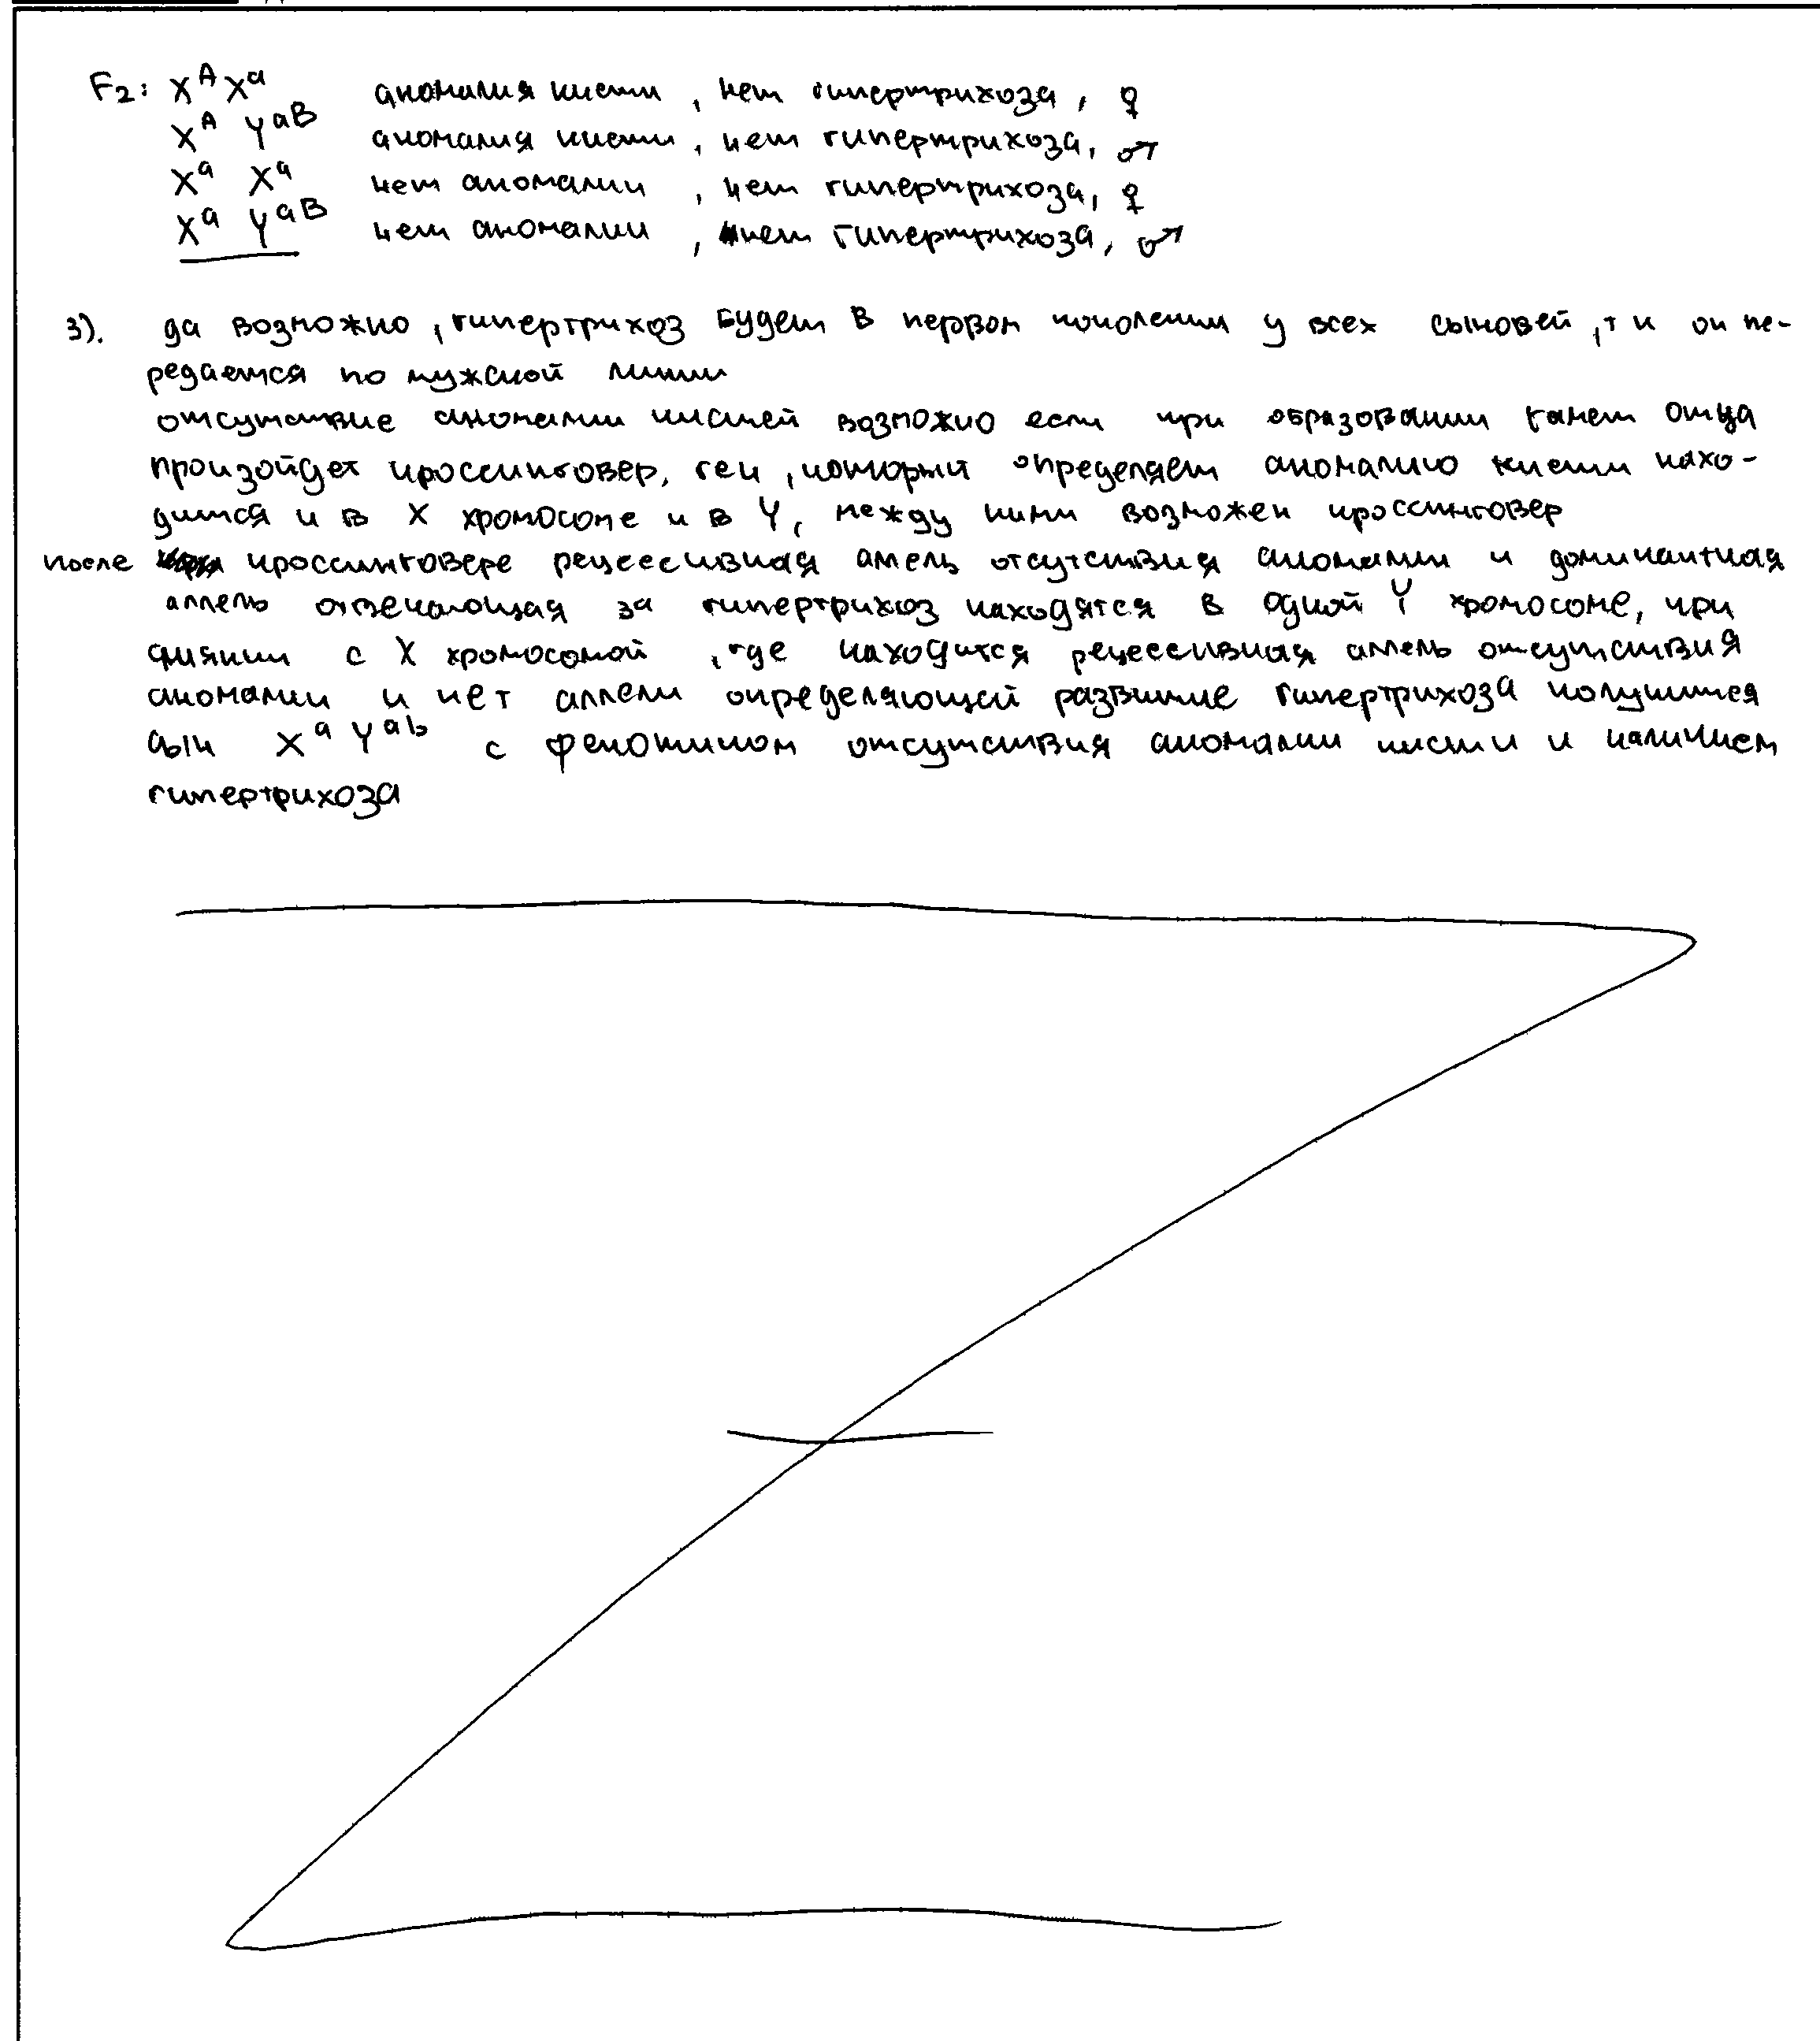 F₂: Xᴬ Xᵃ аномалия кисти, нет гипертрихоза, ♀
Xᴬ Yᵃᴮ аномалия кисти, нет гипертрихоза, ♂
Xᵃ Xᵃ нет аномалии, нет гипертрихоза, ♀
Xᵃ Yᵃᴮ нет аномалии, нет гипертрихоза, ♂
3). да возможно, гипертрихоз будет в первом поколении у всех сыновей, т к он пе-
редается по мужской линии
отсутствие аномалии кистей возможно если при образовании гамет отца
произойдет кроссинговер, ген, который определяет аномалию кисти нахо-
дится и в X хромосоме и в Y, между ними возможен кроссинговер
после кроссинговере рецессивная аллель отсутствия аномалии и доминантная
аллель отвечающая за гипертрихоз находятся в одной Y хромосоме, при
слиянии с X хромосомой, где находится рецессивная аллель отсутствия
аномалии и нет аллели определяющей развитие гипертрихоза получится
сын Xᵃ Yᵃᵇ с фенотипом отсутствия аномалии кисти и наличием
гипертрихоза